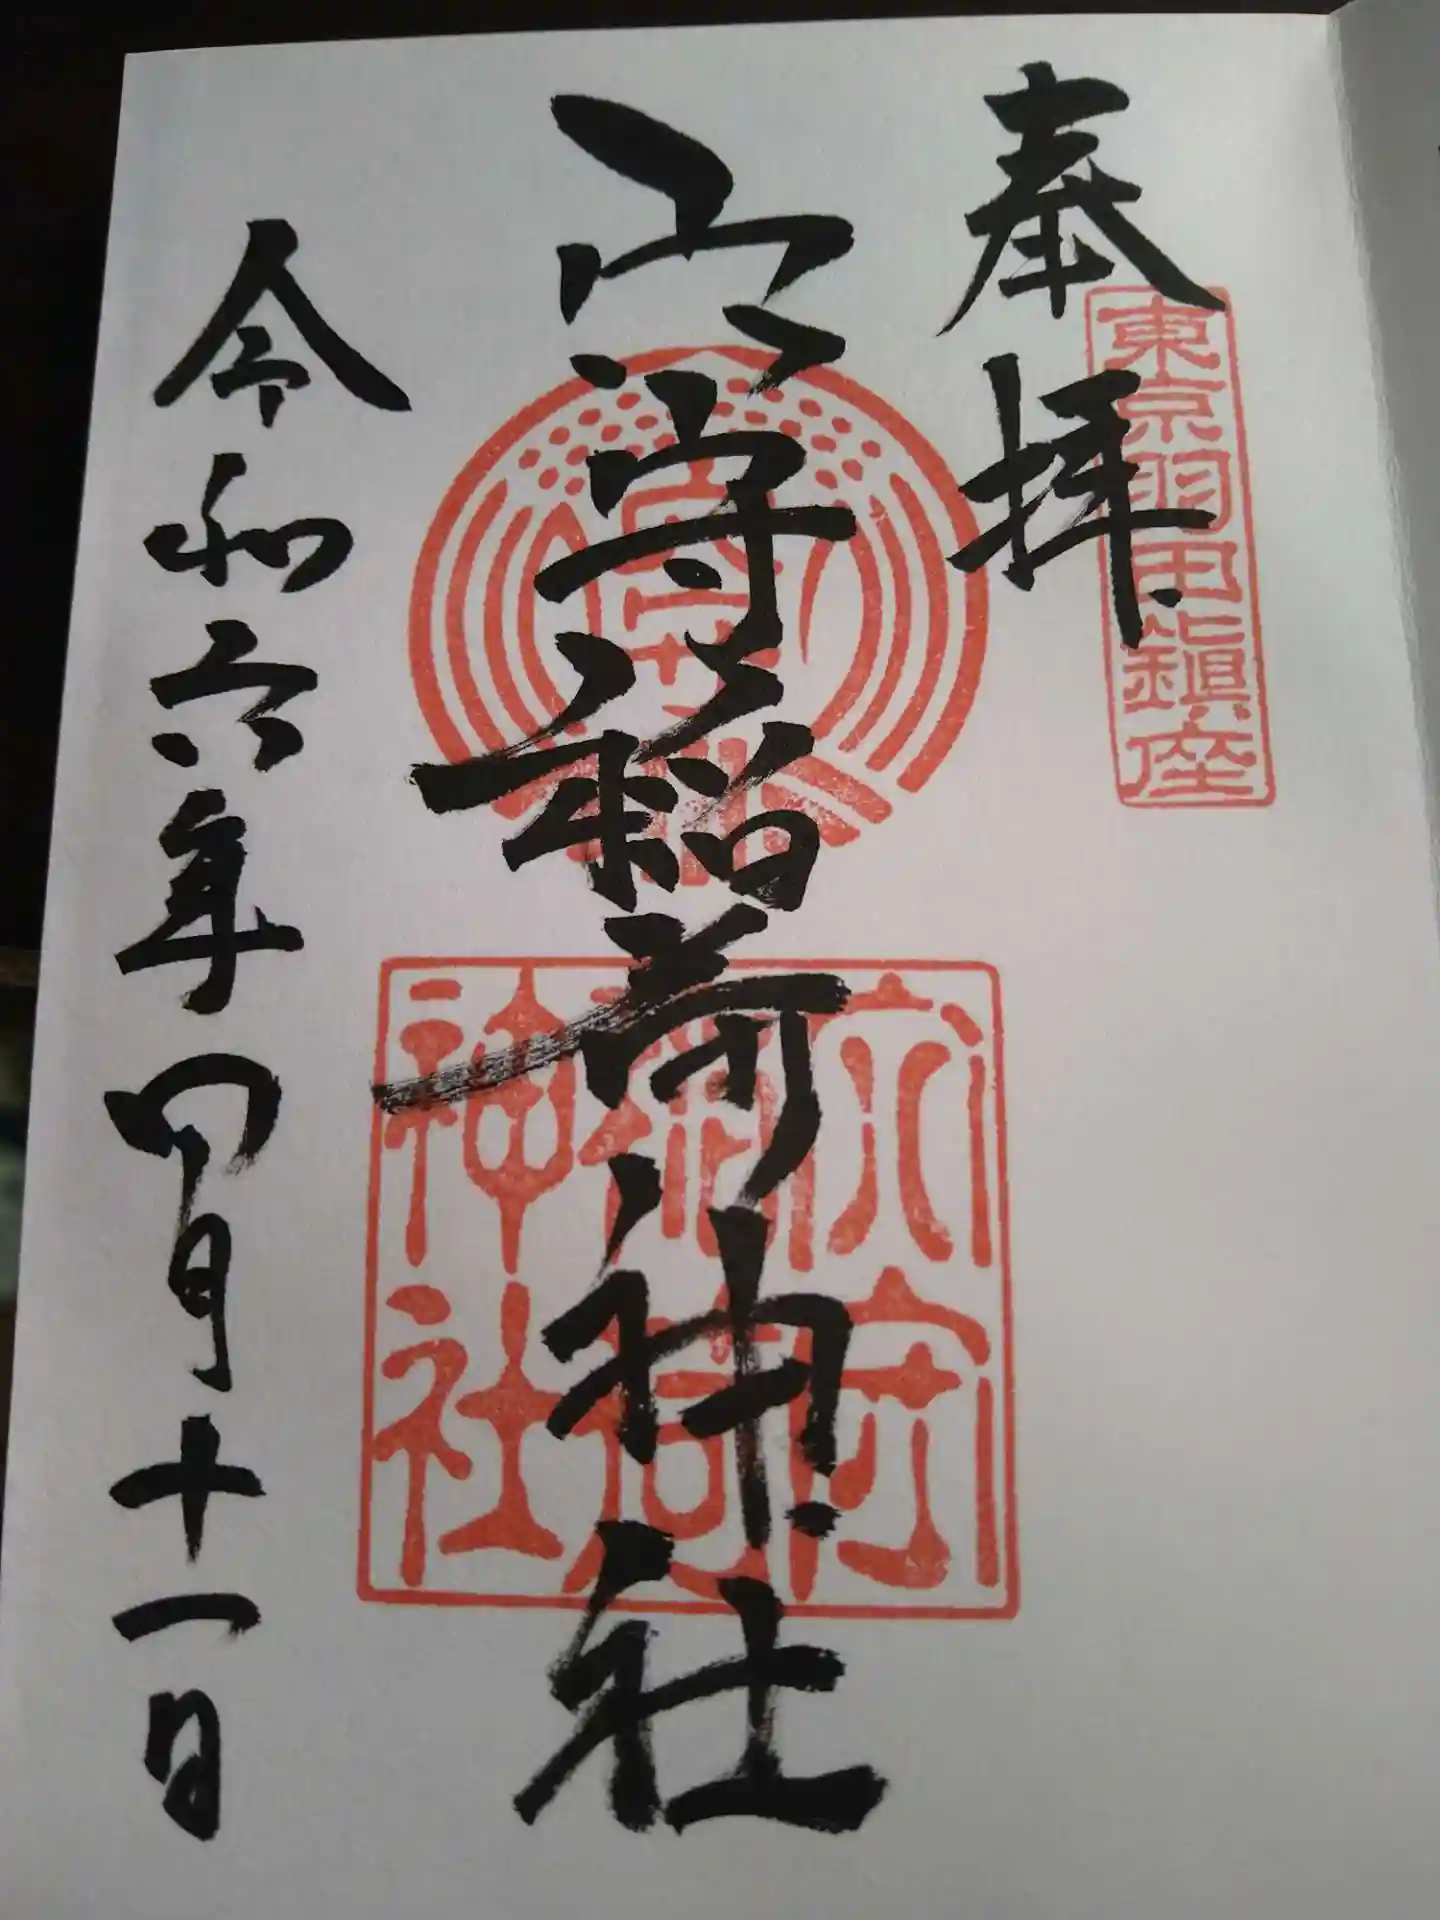 奉拝
東京羽田鎮座
穴守稲荷神社
穴守
稲荷
神社
令和六年四月十一日